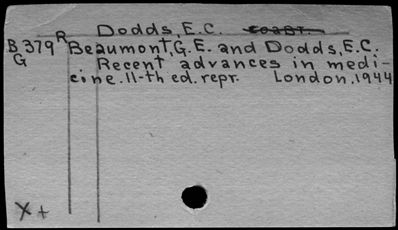 Dodds, E.C.
B379 R Beaumont, G.E. and Dodds, E.C.
G Recent advances in medi-
cine. 11-th ed. repr. London, 1944
X +